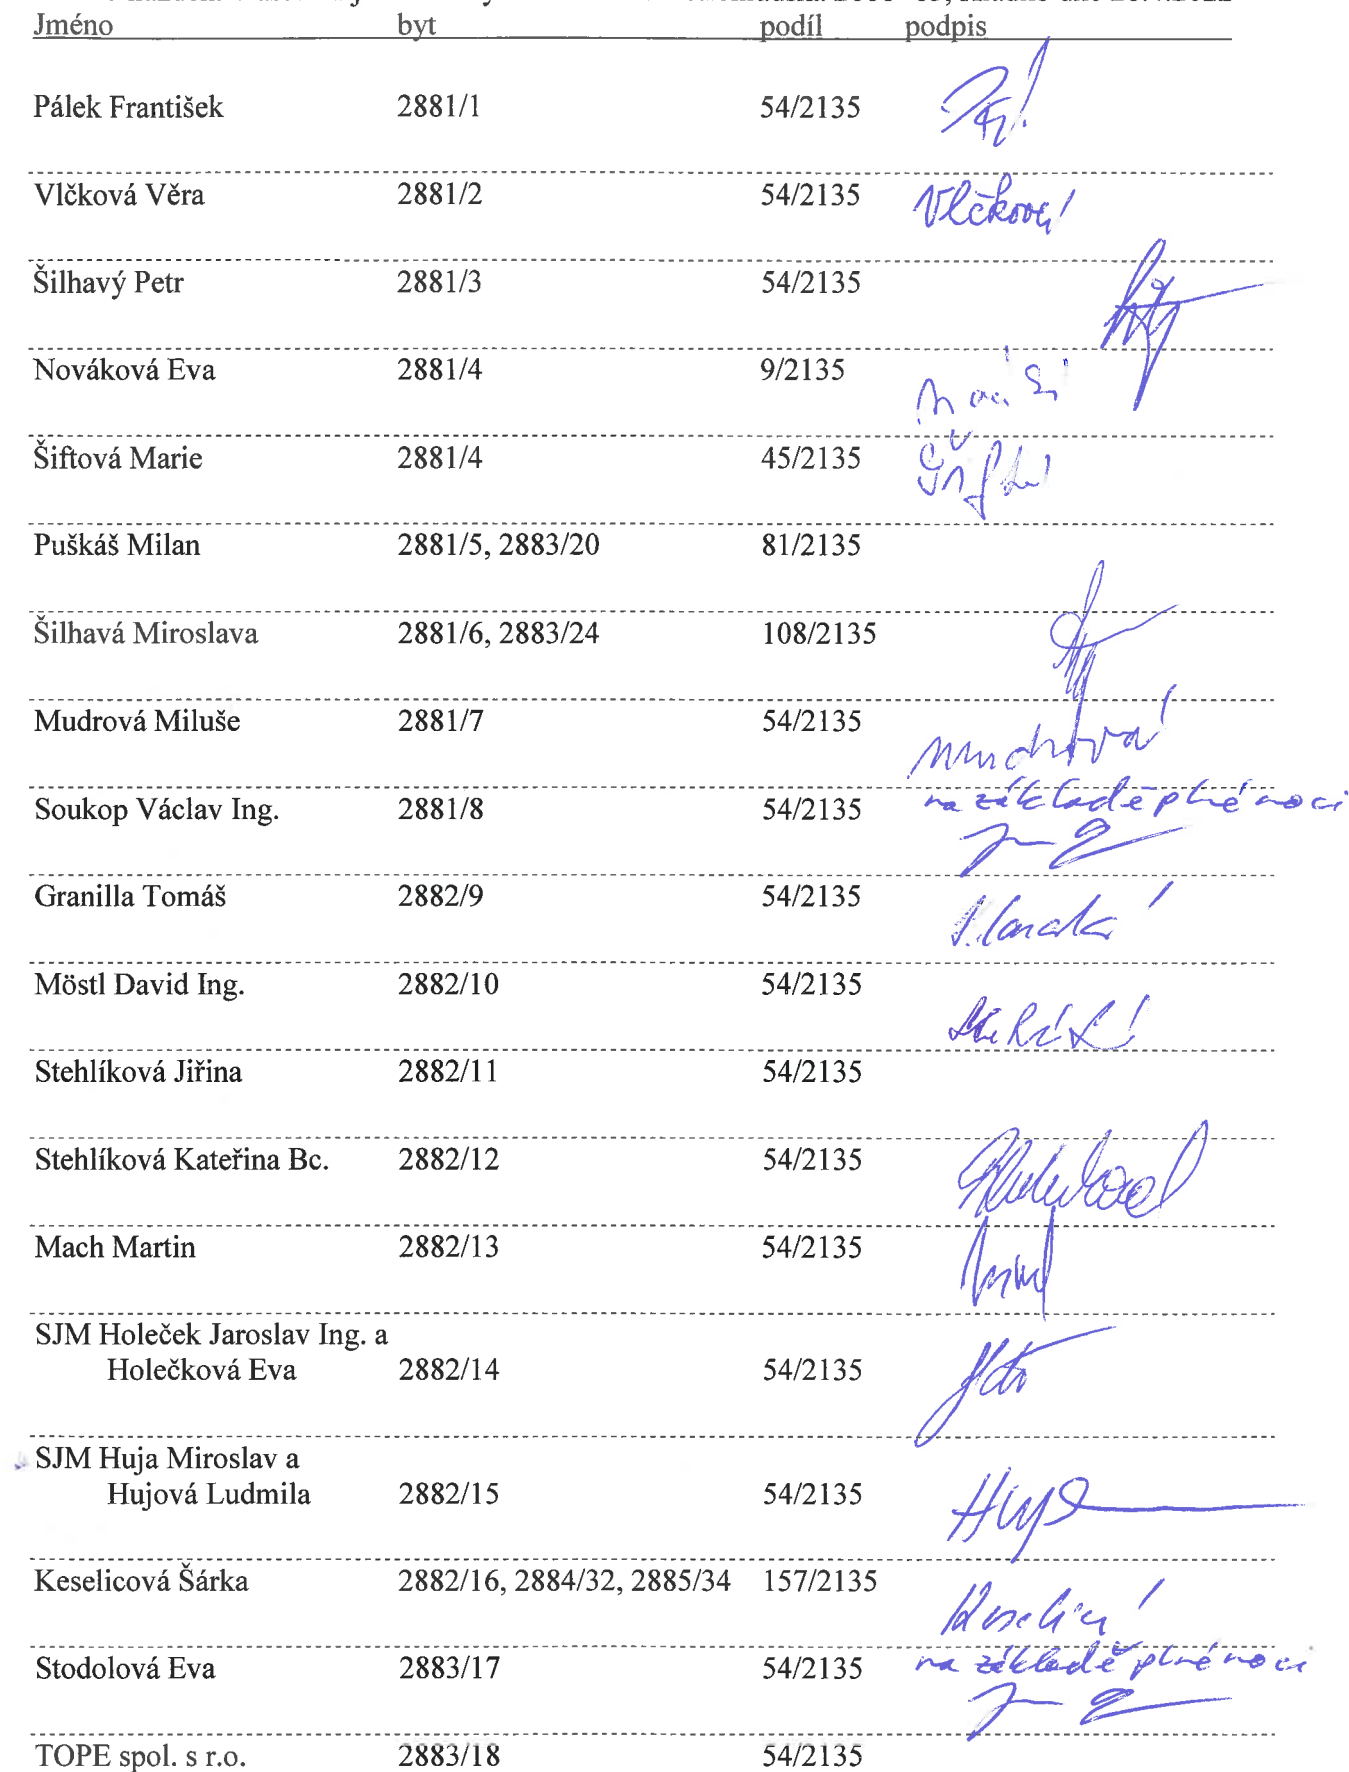 Jméno byt podíl podpis
Pálek František 2881/1 54/2135
Vlčková Věra 2881/2 54/2135 Vlčková
Šilhavý Petr 2881/3 54/2135
Nováková Eva 2881/4 9/2135
Šiftová Marie 2881/4 45/2135
Puškáš Milan 2881/5, 2883/20 81/2135
Šilhavá Miroslava 2881/6, 2883/24 108/2135
Mudrová Miluše 2881/7 54/2135 Mudrová
Soukop Václav Ing. 2881/8 54/2135 na základě plné moci
Granilla Tomáš 2882/9 54/2135
Möstl David Ing. 2882/10 54/2135
Stehlíková Jiřina 2882/11 54/2135
Stehlíková Kateřina Bc. 2882/12 54/2135
Mach Martin 2882/13 54/2135
SJM Holeček Jaroslav Ing. a
Holečková Eva 2882/14 54/2135
SJM Huja Miroslav a
Hujová Ludmila 2882/15 54/2135
Keselicová Šárka 2882/16, 2884/32, 2885/34 157/2135
Stodolová Eva 2883/17 54/2135 na základě plné moci
TOPE spol. s r.o. 2883/18 54/2135